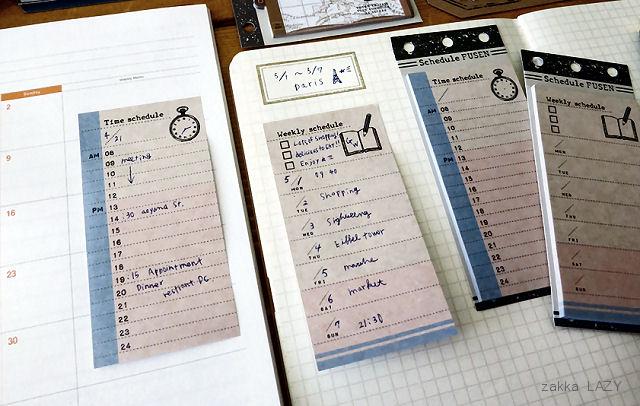 Sunday
2
9
16
23
30
Weekly Memo
Time schedule
4/21
AM
08
09 meeting
10
11
12
PM
13
14 :30 aoyama St.
15
16
17
18
19 :15 Appointment
20 Dinner
21
22
23
24
5/1 ~ 5/7
paris
Weekly schedule
Lots of shopping!
delicious to Eat!!
Enjoy
GW
5/1 MON 09:40
/2 TUE shopping
/3 WED Sightseeing
/4 THU Eiffel tower
/5 FRI marche
/6 SAT market
/7 SUN 21:30
Schedule FUSEN
Time schedule
/
AM
08
09
10
11
12
PM
13
14
15
16
17
18
19
20
21
22
23
24
Schedule FUSEN
Weekly schedule
MON
TUE
WED
THU
FRI
SAT
SUN
zakka LAZY